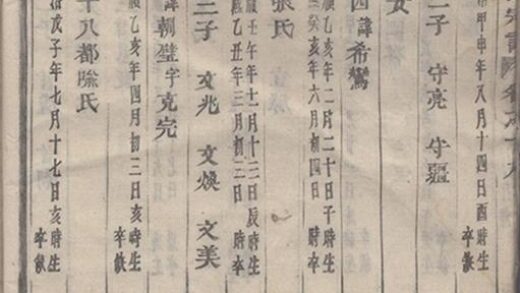 甲申年八月十四日酉時生
卒缺
二子 守亮 守疆
女
四諱希鸞
乙亥年二月二十日子時生
癸亥年六月初四日 時卒
張氏
壬午年十一月十二日辰時生
乙丑年三月初三日 時卒
二子 文兆 文煥 文美
諱朝璧字克完
乙亥年四月初三日亥時生
卒缺
十八都陰氏
戊子年七月十七日亥時生
卒缺